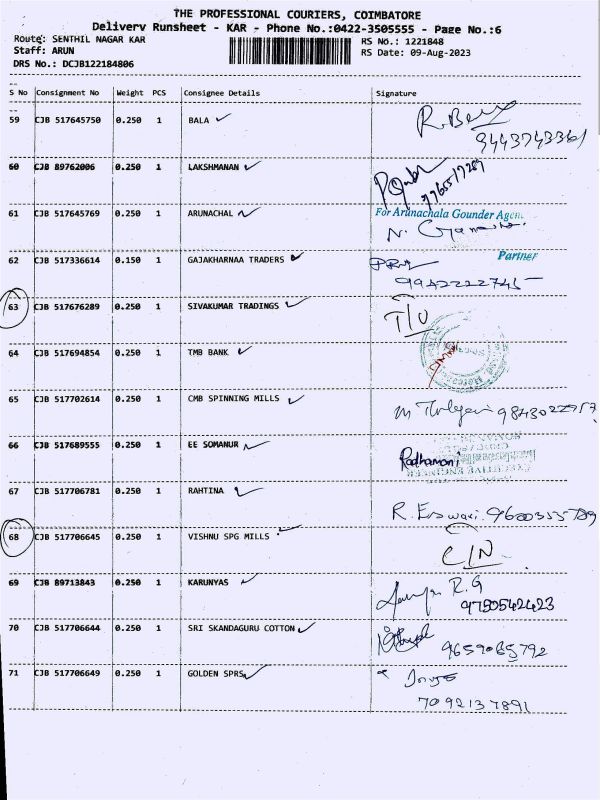 THE PROFESSIONAL COURIERS, COIMBATORE
Delivery Runsheet - KAR - Phone No.:0422-3505555 - Page No.:6
Route: SENTHIL NAGAR KAR
RS No.: 1221848
Staff: ARUN
RS Date: 09-Aug-2023
DRS No.: DCJB122184806
S No Consignment No Weight PCS Consignee Details Signature
59 CJB 517645750 0.250 1 BALA
9443743361
60 CJB 89762006 0.250 1 LAKSHMANAN
61 CJB 517645769 0.250 1 ARUNACHAL
For Arunachala Gounder Agen
62 CJB 517336614 0.150 1 GAJAKHARNAA TRADERS
Partner
63 CJB 517676289 0.250 1 SIVAKUMAR TRADINGS
64 CJB 517694854 0.250 1 TMB BANK
65 CJB 517702614 0.250 1 CMB SPINNING MILLS
66 CJB 517689555 0.250 1 EE SOMANUR
Radhamani
67 CJB 517706781 0.250 1 RAHTINA
68 CJB 517706645 0.250 1 VISHNU SPG MILLS
C/N
69 CJB 89713843 0.250 1 KARUNYAS
R.G
9750542423
70 CJB 517706644 0.250 1 SRI SKANDAGURU COTTON
9659065792
71 CJB 517706649 0.250 1 GOLDEN SPRS
7092137891